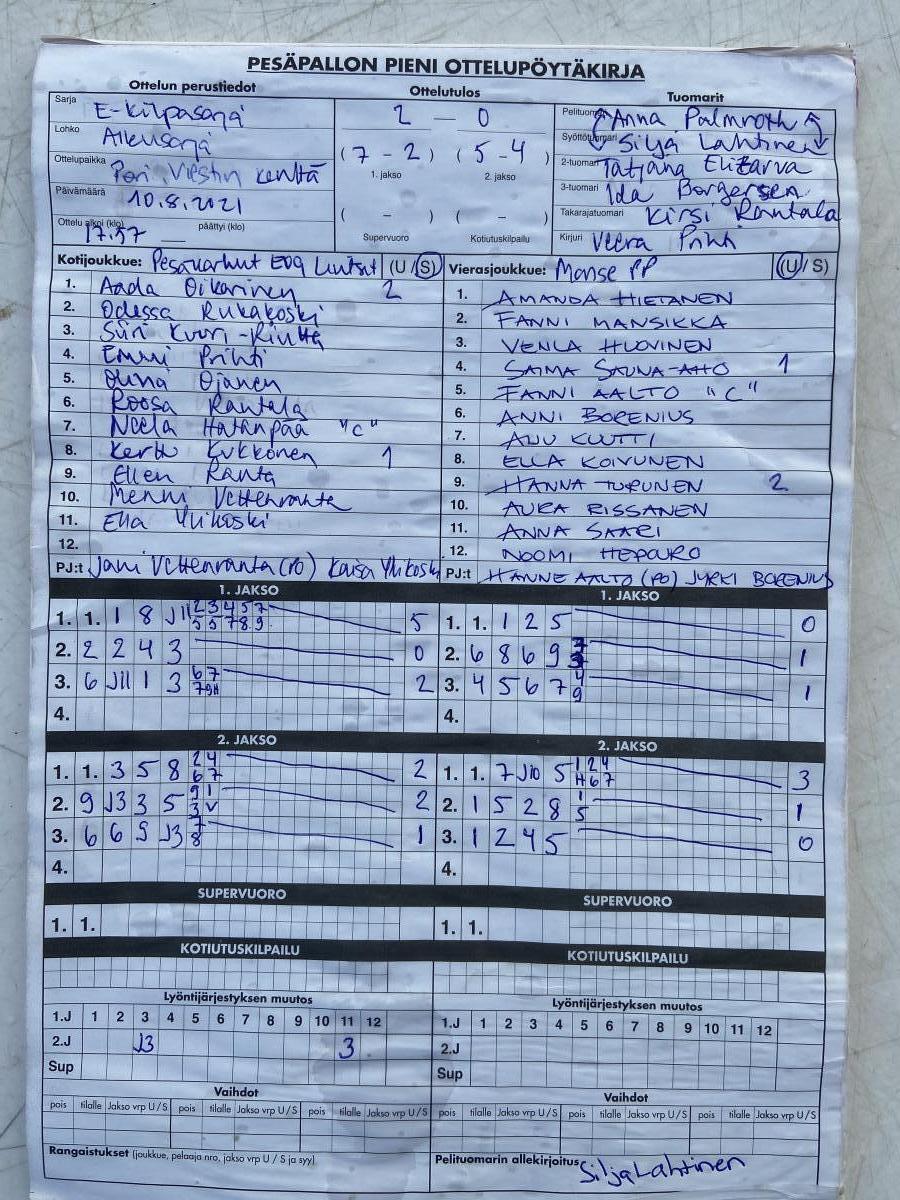 PESÄPALLON PIENI OTTELUPÖYTÄKIRJA
Ottelun perustiedot
Sarja E-kilpasarja
Lohko Alkusarja
Ottelupaikka Pori Viestin kenttä
Päivämäärä 10.8.2021
Ottelu alkoi (klo) päättyi (klo)
17.57 —
Ottelutulos
2 — 0
(7 - 2) (5 - 4)
1. jakso 2. jakso
( - ) ( - )
Supervuoro Kotiutuskilpailu
Tuomarit
Pelituomari Anna Palmroth
Syöttötuomari Silja Lahtinen
2-tuomari Tatjana Elizarva
3-tuomari Ida Borgersen
Takarajatuomari Kirsi Rantala
Kirjuri Veera Prihti
Kotijoukkue: Pesäkarhut E09 (U / S)
1. Aada Oikarinen 2
2. Odessa Rukakoski
3. Siiri Kuori-Kiutta
4. Emmi Prihti
5. Ojanen
6. Roosa Rantala
7. Neela Hatanpää "C"
8. Kerttu Kukkonen 1
9. Ellen Ranta
10. Menni Vettenranta
11. Ella Ylikoski
12.
PJ:t Jani Vettenranta (PO) Kaisa Ylikoski
Vierasjoukkue: Manse PP (U / S)
1. AMANDA HIETANEN
2. FANNI MANSIKKA
3. VENLA HUOVINEN
4. SAIMA SAUNA-AHO 1
5. FANNI AALTO "C"
6. ANNI BORENIUS
7. ANU KUUTTI
8. ELLA KOIVUNEN
9. HANNA TURUNEN 2
10. AURA RISSANEN
11. ANNA SAARI
12. NOOMI HEPOURO
PJ:t HANNE AALTO (PO) JYRKI BORENIUS
1. JAKSO
1. 1. 1 8 J11 2 3 4 5 7 5
5 5 7 8 9
2. 2 2 4 3 0
3. 6 J11 1 3 6 7 2
7 9H
4.
1. JAKSO
1. 1. 1 2 5 0
2. 6 8 6 9 1
3. 4 5 6 7 4 1
9
4.
2. JAKSO
1. 1. 3 5 8 2 4 2
6 7
2. 9 J3 3 5 9 1 2
3 V
3. 6 6 5 J3 7 1
8
4.
2. JAKSO
1. 1. 7 J10 5 1 2 4 3
H 6 7
2. 1 5 2 8 1 1
5
3. 1 2 4 5 0
4.
SUPERVUORO
1. 1.
SUPERVUORO
1. 1.
KOTIUTUSKILPAILU
KOTIUTUSKILPAILU
Lyöntijärjestyksen muutos
1.J 1 2 3 4 5 6 7 8 9 10 11 12
2.J J3 3
Sup
Lyöntijärjestyksen muutos
1.J 1 2 3 4 5 6 7 8 9 10 11 12
2.J
Sup
Vaihdot
pois tilalle Jakso vrp U / S pois tilalle Jakso vrp U / S pois tilalle Jakso vrp U / S
Vaihdot
pois tilalle Jakso vrp U / S pois tilalle Jakso vrp U / S pois tilalle Jakso vrp U / S
Rangaistukset (joukkue, pelaaja nro, jakso vrp U / S ja syy)
Pelituomarin allekirjoitus Silja Lahtinen